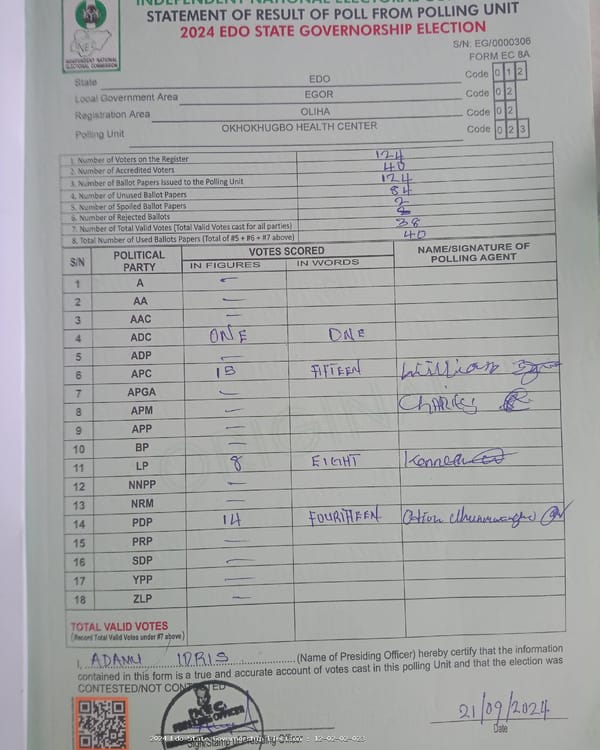 INDEPENDENT NATIONAL ELECTORAL
STATEMENT OF RESULT OF POLL FROM POLLING UNIT
2024 EDO STATE GOVERNORSHIP ELECTION
INDEPENDENT NATIONAL
ELECTORAL COMMISSION
S/N: EG/0000306
FORM EC 8A
State EDO Code 0 1 2
Local Government Area EGOR Code 0 2
Registration Area OLIHA Code 0 2
Polling Unit OKHOKHUGBO HEALTH CENTER Code 0 2 3
1. Number of Voters on the Register 124
2. Number of Accredited Voters 40
3. Number of Ballot Papers Issued to the Polling Unit 124
4. Number of Unused Ballot Papers 84
5. Number of Spoiled Ballot Papers 2
6. Number of Rejected Ballots
7. Number of Total Valid Votes (Total Valid Votes cast for all parties) 38
8. Total Number of Used Ballots Papers (Total of #5 + #6 + #7 above) 40
S/N POLITICAL PARTY VOTES SCORED NAME/SIGNATURE OF POLLING AGENT
IN FIGURES IN WORDS
1 A –
2 AA –
3 AAC –
4 ADC ONE ONE
5 ADP –
6 APC 15 FIFTEEN William
7 APGA –
8 APM – Charles
9 APP –
10 BP –
11 LP 8 EIGHT Kenneth
12 NNPP –
13 NRM –
14 PDP 14 FOURTHEEN
15 PRP –
16 SDP –
17 YPP –
18 ZLP –
TOTAL VALID VOTES
(Record Total Valid Votes under #7 above)
I, ADAMU IDRIS (Name of Presiding Officer) hereby certify that the information
contained in this form is a true and accurate account of votes cast in this polling Unit and that the election was
CONTESTED/NOT CONTESTED
21/09/2024
Date
2024 Edo State Governorship Election : 12-02-02-023